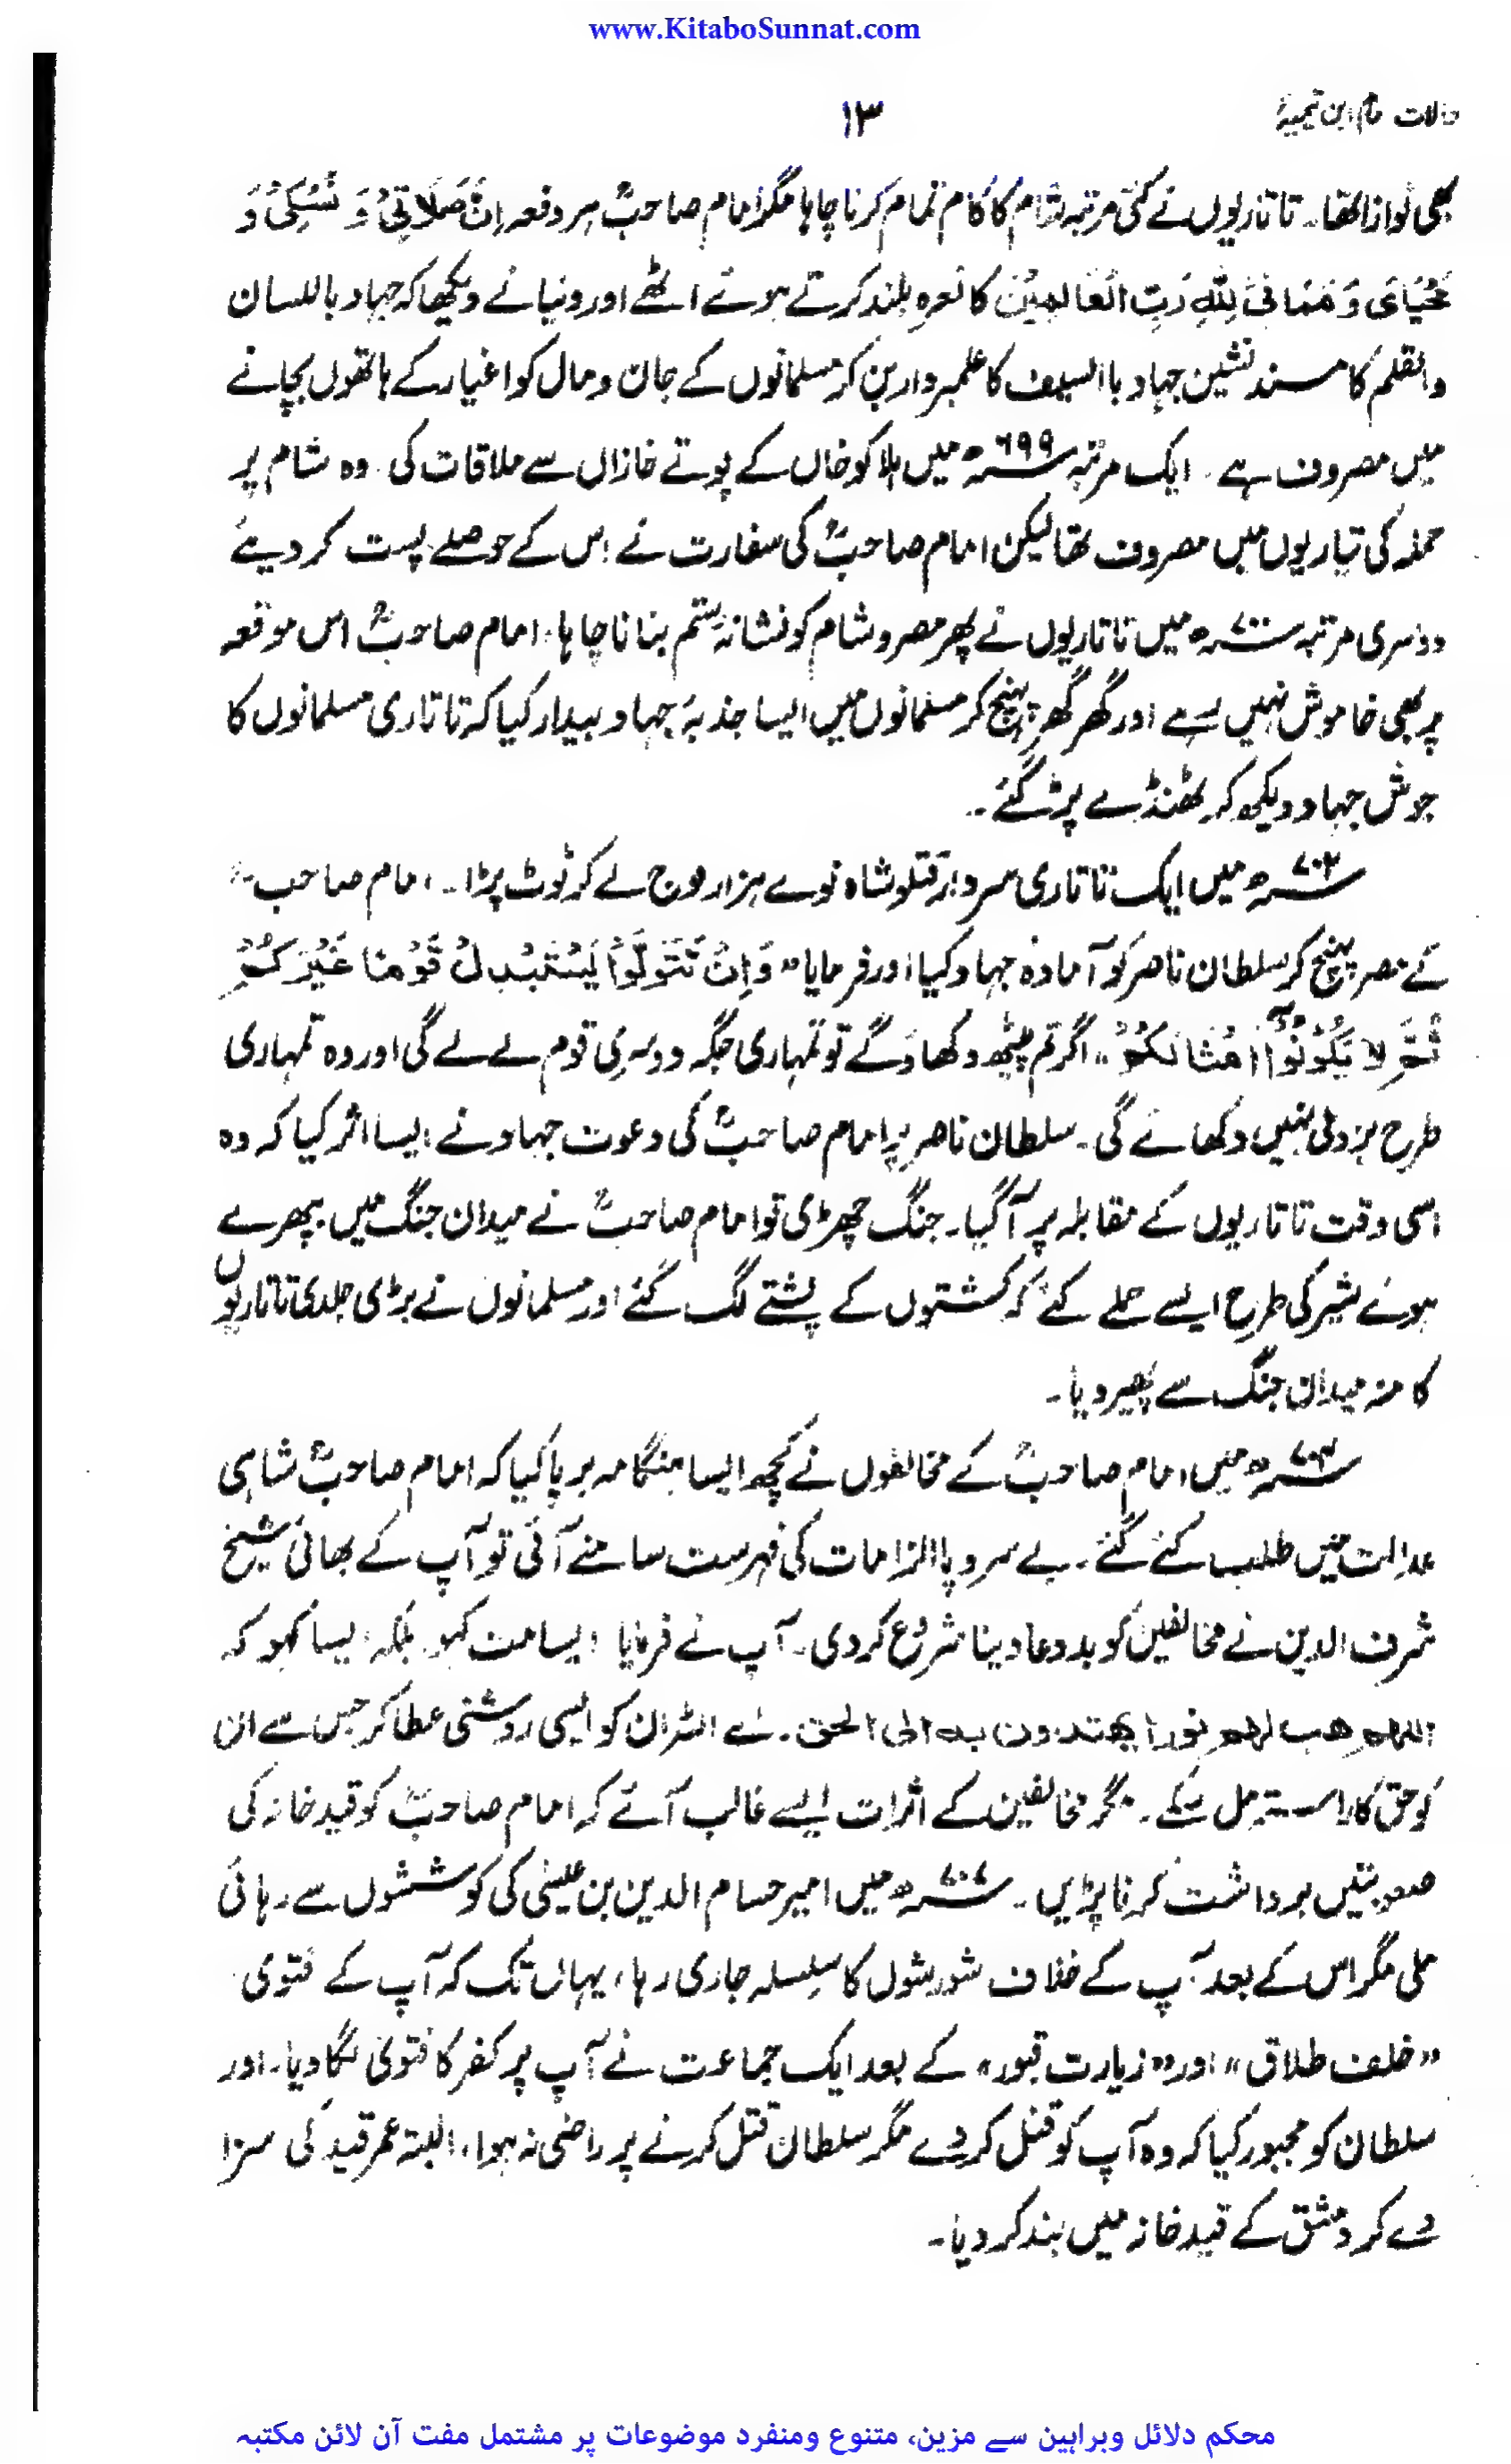 www.KitaboSunnat.com
حالات امام ابن تیمیہؒ
۱۳
بھی نوازا تھا۔ تاتاریوں نے کئی مرتبہ شام کا کام تمام کرنا چاہا مگر امام صاحبؒ ہر دفعہ اِنَّ صَلَاتِیْ وَ نُسُکِیْ وَ
مَحْیَایَ وَ مَمَاتِیْ لِلّٰهِ رَبِّ الْعَالَمِیْنَ کا نعرہ بلند کرتے ہوئے اٹھے اور دنیا نے دیکھا کہ جہاد باللسان
والقلم کا مسند نشین جہاد باالسیف کا علمبردار بن کر مسلمانوں کے جان و مال کو اغیار کے ہاتھوں بچانے
میں مصروف ہے۔ ایک مرتبہ ۶۹۹ھ میں ہلاکو خاں کے پوتے غازاں سے ملاقات کی۔ وہ شام پر
حملہ کی تیاریوں میں مصروف تھا لیکن امام صاحبؒ کی سفارت نے اس کے حوصلے پست کر دیئے
دوسری مرتبہ ۷۰۰ھ میں تاتاریوں نے پھر مصر و شام کو نشانۂ ستم بنانا چاہا، امام صاحبؒ اس موقعہ
پر بھی خاموش نہیں رہے اور گھر گھر پہنچ کر مسلمانوں میں ایسا جذبۂ جہاد بیدار کیا کہ تاتاری مسلمانوں کا
جوش جہاد دیکھ کر ٹھنڈے پڑ گئے۔
۷۰۲ھ میں ایک تاتاری سردار قتلو شاہ نوے ہزار فوج لے کر ٹوٹ پڑا۔ امام صاحبؒ
نے مصر پہنچ کر سلطان ناصر کو آمادہ جہاد کیا اور فرمایا "وَاِنْ تَتَوَلَّوْا یَسْتَبْدِلْ قَوْمًا غَیْرَکُمْ
ثُمَّ لَا یَکُوْنُوْا اَمْثَالَکُمْ" اگر تم پیٹھ دکھاؤ گے تو تمہاری جگہ دوسری قوم لے لے گی اور وہ تمہاری
طرح بزدلی نہیں دکھائے گی۔ سلطان ناصر پر امام صاحبؒ کی دعوت جہاد نے ایسا اثر کیا کہ وہ
اسی وقت تاتاریوں کے مقابلہ پر آ گیا۔ جنگ چھڑی تو امام صاحبؒ نے میدان جنگ میں بپھرے
ہوئے شیر کی طرح ایسے حملے کئے کہ کشتوں کے پشتے لگ گئے اور مسلمانوں نے بڑی جلدی تاتاریوں
کا منہ میدان جنگ سے پھیر دیا۔
میں امام صاحبؒ کے مخالفوں نے کچھ ایسا ہنگامہ برپا کیا کہ امام صاحبؒ شاہی
عدالت میں طلب کئے گئے۔ بے سروپا الزامات کی فہرست سامنے آئی تو آپ کے بھائی شیخ
شرف الدین نے مخالفین کو بددعا دینا شروع کر دی۔ آپ نے فرمایا ایسا مت کہو بلکہ ایسا کہو کہ
اللهم هب لهم نورا یهتدون به الی الحق۔ اے اللہ ان کو ایسی روشنی عطا کر جس سے ان
کو حق کا راستہ مل سکے۔ مگر مخالفین کے اثرات ایسے غالب آئے کہ امام صاحبؒ کو قید خانہ کی
صعوبتیں برداشت کرنا پڑیں۔ ۷۰۷ھ میں امیر حسام الدین بن عیسیٰ کی کوششوں سے رہائی
ملی مگر اس کے بعد آپ کے خلاف شورشوں کا سلسلہ جاری رہا، یہاں تک کہ آپ کے فتوی
"حلف طلاق" اور "زیارت قبور" کے بعد ایک جماعت نے آپ پر کفر کا فتویٰ لگا دیا۔ اور
سلطان کو مجبور کیا کہ وہ آپ کو قتل کر دے مگر سلطان قتل کرنے پر راضی نہ ہوا، البتہ عمر قید کی سزا
دے کر دمشق کے قید خانہ میں بند کر دیا۔
محکم دلائل وبراہین سے مزین، متنوع ومنفرد موضوعات پر مشتمل مفت آن لائن مکتبہ